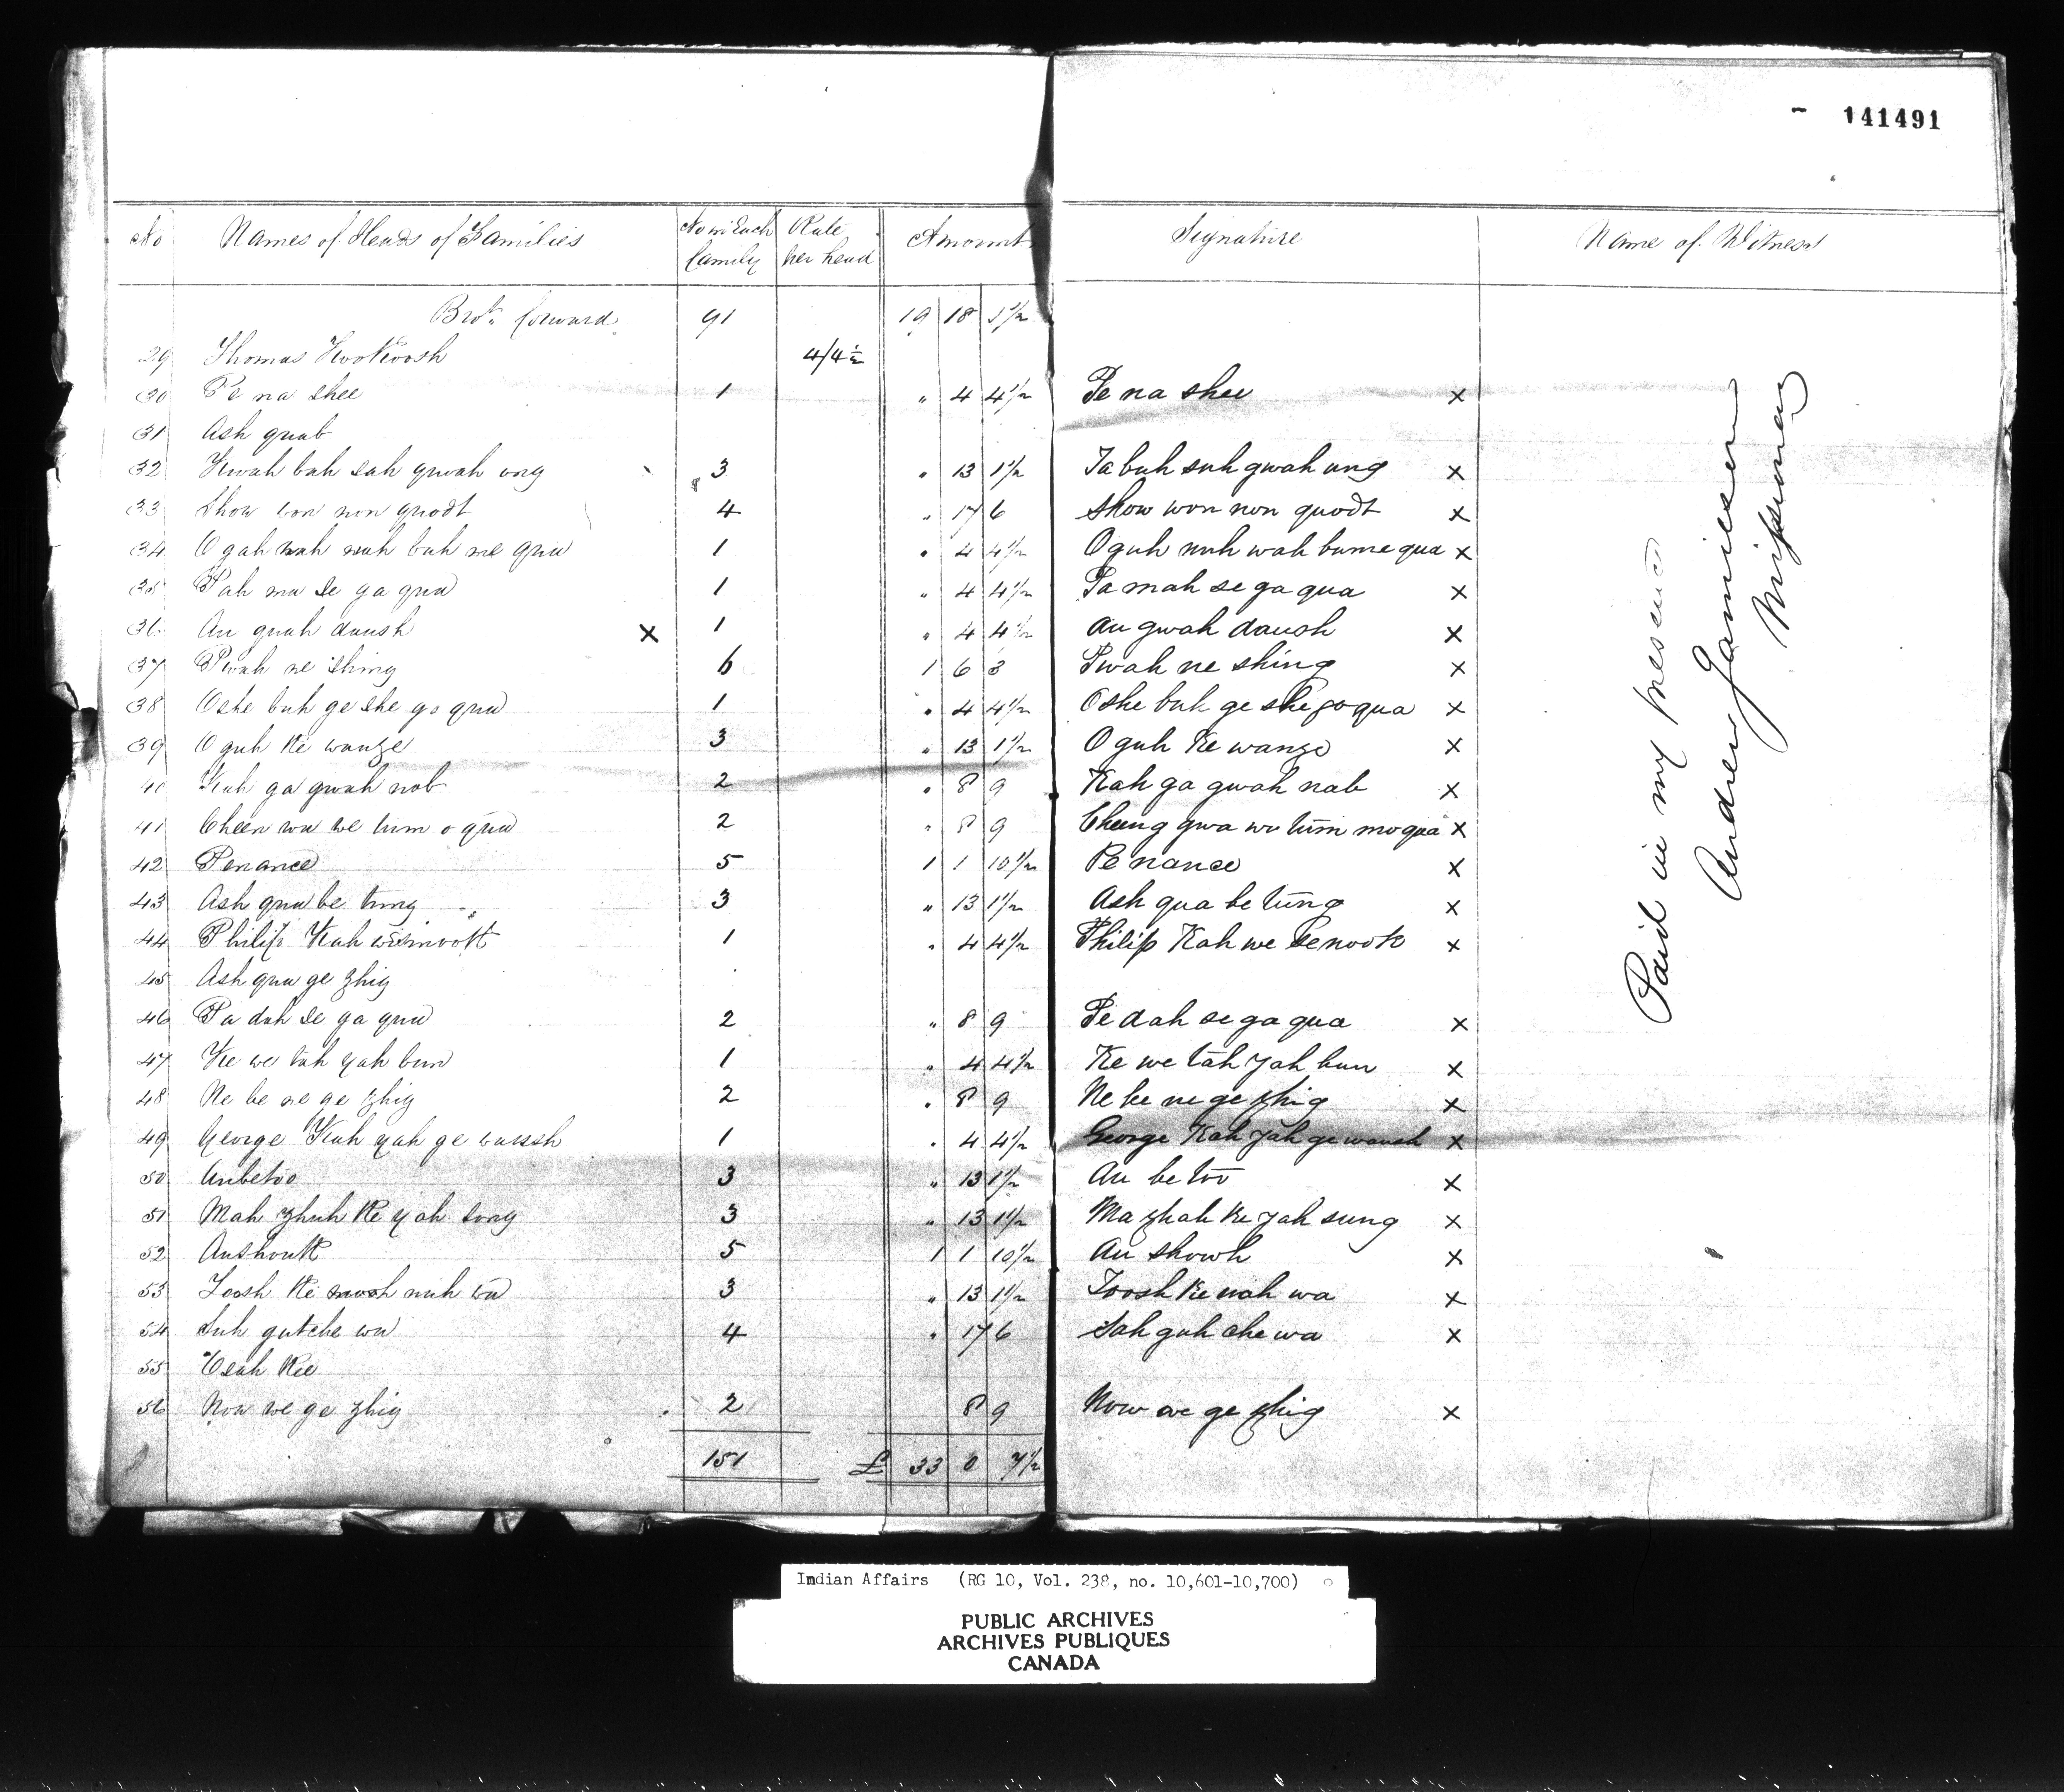 - 141491
No Names of Heads of Families No in Each family Rate per head Amount Signature Name of Witness
Brot. forward 91 19 18 1½
29 Thomas 4/4½
30 Pe na shee 1 " 4 4½ Pe na shee x
31 Ash quab
32 Kwah bah sah gwah ong 3 " 13 1½ Ta buh suh gwah ung x
33 Show won non quodt 4 " 17 6 Show won non quodt x
34 O gah nah nuh buh me qua 1 " 4 4½ O guh nuh wah bume qua x
35 Pah ma se ga qua 1 " 4 4½ Pa mah se ga qua x
36 An guah daush x 1 " 4 4½ An gwah daush x
37 Pwah ne shing 6 1 6 3 Pwah ne shing x
38 Oshe buh ge she go qua 1 " 4 4½ Oshe buh ge she go qua x
39 O guh ke wanze 3 " 13 1½ O guh ke wanze x
40 Kah ga gwah nob 2 " 8 9 Kah ga gwah nab x
41 Cheen wa we tum o qua 2 " 8 9 Cheeng gwa we tum mo qua x
42 Penance 5 1 1 10½ Pe nance x
43 Ash qua be tung 3 " 13 1½ Ash qua be tung x
44 Philip Kah wesinoott 1 " 4 4½ Philip Kah we se nook x
45 Ash qua ge zhig
46 Pa dah se ga qua 2 " 8 9 Pe dah se ga qua x
47 Ke we tah yah bun 1 " 4 4½ Ke we tah yah bun x
48 Ne be ne ge zhig 2 " 8 9 Ne be ne ge zhig x
49 George Kah yah ge waush 1 " 4 4½ George Kah yah ge waush x
50 Aubetoo 3 " 13 1½ Au be too x
51 Mah zhuh ke yah song 3 " 13 1½ Ma zhah ke yah sung x
52 Aushouk 5 1 1 10½ Au showh x
53 Toosh ke nuh wa 3 " 13 1½ Toosh ke nah wa x
54 Suh gutche wa 4 " 17 6 Sah guh che wa x
55 Osah kee
56 Now we ge zhig 2 8 9 Now we ge zhig x
151 £ 33 0 7½
Paid in my presence
Andrew Jamieson
Missionary
Indian Affairs (RG 10, Vol. 238, no. 10,601-10,700)
PUBLIC ARCHIVES
ARCHIVES PUBLIQUES
CANADA